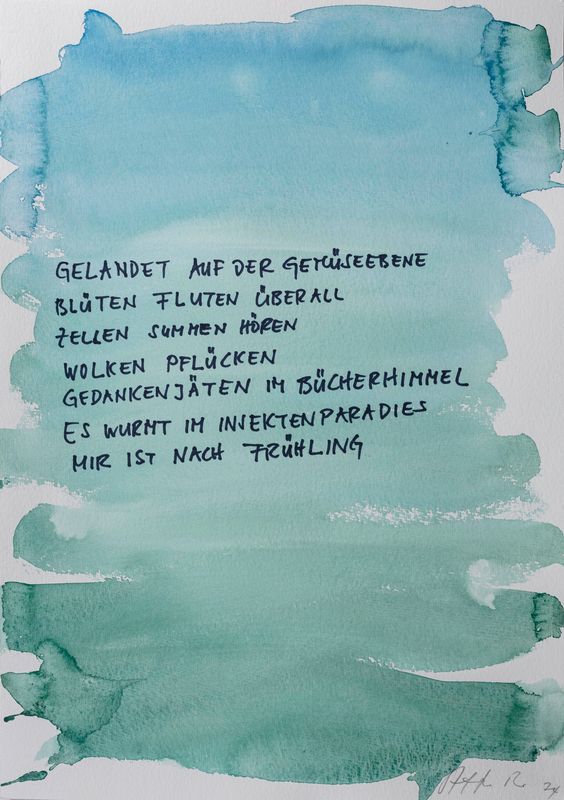 GELANDET AUF DER GEMÜSEEBENE
BLÜTEN FLUTEN ÜBERALL
ZELLEN SUMMEN HÖREN
WOLKEN PFLÜCKEN
GEDANKENJÄTEN IM BÜCHERHIMMEL
ES WURMT IM INSEKTENPARADIES
MIR IST NACH FRÜHLING